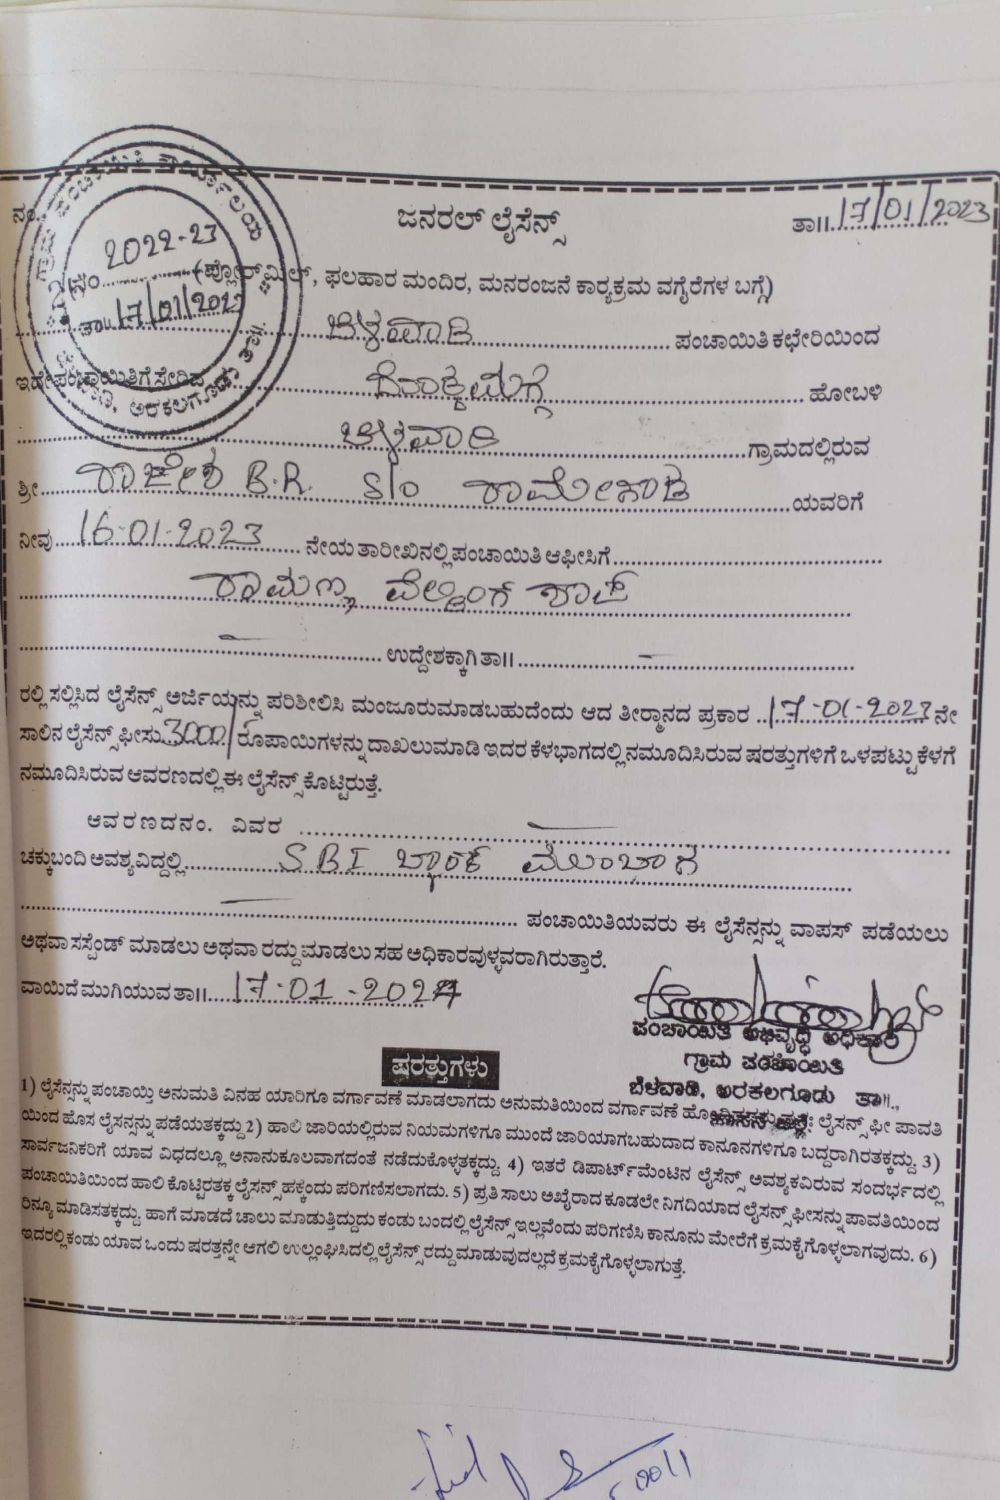 ನಂ. ಜನರಲ್ ಲೈಸೆನ್ಸ್ ತಾ॥ 17/01/2023
ಗ್ರಾಮ ಪಂಚಾಯಿತಿ ಕಾರ್ಯಾಲಯ
ನಂ 2022-23
ತಾ॥ 17/01/2023
ಅರಕಲಗೂಡು
(ಪ್ಲೋರ್‌ಮಿಲ್, ಫಲಹಾರ ಮಂದಿರ, ಮನರಂಜನೆ ಕಾರ್‍ಯಕ್ರಮ ವಗೈರೆಗಳ ಬಗ್ಗೆ)
ಬೆಳವಾಡಿ ಪಂಚಾಯಿತಿ ಕಛೇರಿಯಿಂದ
ಇದೇ ಪಂಚಾಯಿತಿಗೆ ಸೇರಿದ ದೊಡ್ಡಮಗ್ಗೆ ಹೋಬಳಿ
ಬೆಳವಾಡಿ ಗ್ರಾಮದಲ್ಲಿರುವ
ಶ್ರೀ ರಾಜೇಶ B.R. S/o ರಾಮೇಗೌಡ ಯವರಿಗೆ
ನೀವು 16-01-2023 ನೇಯ ತಾರೀಖಿನಲ್ಲಿ ಪಂಚಾಯಿತಿ ಆಫೀಸಿಗೆ
ರಾಮಣ್ಣ ವೆಲ್ಡಿಂಗ್ ಶಾಪ್
ಉದ್ದೇಶಕ್ಕಾಗಿ ತಾ॥
ರಲ್ಲಿ ಸಲ್ಲಿಸಿದ ಲೈಸೆನ್ಸ್ ಅರ್ಜಿಯನ್ನು ಪರಿಶೀಲಿಸಿ ಮಂಜೂರುಮಾಡಬಹುದೆಂದು ಆದ ತೀರ್‍ಮಾನದ ಪ್ರಕಾರ 17-01-2023 ನೇ
ಸಾಲಿನ ಲೈಸೆನ್ಸ್ ಫೀಸು 3000/ ರೂಪಾಯಿಗಳನ್ನು ದಾಖಲುಮಾಡಿ ಇದರ ಕೆಳಭಾಗದಲ್ಲಿ ನಮೂದಿಸಿರುವ ಷರತ್ತುಗಳಿಗೆ ಒಳಪಟ್ಟು ಕೆಳಗೆ
ನಮೂದಿಸಿರುವ ಆವರಣದಲ್ಲಿ ಈ ಲೈಸೆನ್ಸ್ ಕೊಟ್ಟಿರುತ್ತೆ.
ಆವರಣದ ನಂ. ವಿವರ
ಚಕ್ಕುಬಂದಿ ಅವಶ್ಯವಿದ್ದಲ್ಲಿ SBI ಬ್ಯಾಂಕ್ ಮುಂಭಾಗ
ಪಂಚಾಯಿತಿಯವರು ಈ ಲೈಸೆನ್ಸನ್ನು ವಾಪಸ್ ಪಡೆಯಲು
ಅಥವಾ ಸಸ್ಪೆಂಡ್ ಮಾಡಲು ಅಥವಾ ರದ್ದು ಮಾಡಲು ಸಹ ಅಧಿಕಾರವುಳ್ಳವರಾಗಿರುತ್ತಾರೆ.
ವಾಯಿದೆ ಮುಗಿಯುವ ತಾ॥ 17-01-2024
ಪಂಚಾಯಿತಿ ಅಭಿವೃದ್ಧಿ ಅಧಿಕಾರಿ
ಗ್ರಾಮ ಪಂಚಾಯಿತಿ
ಬೆಳವಾಡಿ, ಅರಕಲಗೂಡು ತಾ॥.,
ಷರತ್ತುಗಳು
1) ಲೈಸೆನ್ಸನ್ನು ಪಂಚಾಯ್ತಿ ಅನುಮತಿ ವಿನಹ ಯಾರಿಗೂ ವರ್ಗಾವಣೆ ಮಾಡಲಾಗದು ಅನುಮತಿಯಿಂದ ವರ್ಗಾವಣೆ ಲೈಸೆನ್ಸ್ ಫೀ ಪಾವತಿ
ಯಿಂದ ಹೊಸ ಲೈಸನ್ಸನ್ನು ಪಡೆಯತಕ್ಕದ್ದು 2) ಹಾಲಿ ಜಾರಿಯಲ್ಲಿರುವ ನಿಯಮಗಳಿಗೂ ಮುಂದೆ ಜಾರಿಯಾಗಬಹುದಾದ ಕಾನೂನಗಳಿಗೂ ಬದ್ದರಾಗಿರತಕ್ಕದ್ದು. 3)
ಸಾರ್ವಜನಿಕರಿಗೆ ಯಾವ ವಿಧದಲ್ಲೂ ಅನಾನುಕೂಲವಾಗದಂತೆ ನಡೆದುಕೊಳ್ಳತಕ್ಕದ್ದು. 4) ಇತರೆ ಡಿಪಾರ್ಟ್‌ಮೆಂಟಿನ ಲೈಸೆನ್ಸ್ ಅವಶ್ಯಕವಿರುವ ಸಂದರ್ಭದಲ್ಲಿ
ಪಂಚಾಯಿತಿಯಿಂದ ಹಾಲಿ ಕೊಟ್ಟಿರತಕ್ಕ ಲೈಸನ್ಸ್ ಹಕ್ಕೆಂದು ಪರಿಗಣಿಸಲಾಗದು. 5) ಪ್ರತಿ ಸಾಲು ಅಖೈರಾದ ಕೂಡಲೇ ನಿಗದಿಯಾದ ಲೈಸನ್ಸ್ ಫೀಸನ್ನು ಪಾವತಿಯಿಂದ
ರಿನ್ಯೂ ಮಾಡಿಸತಕ್ಕದ್ದು. ಹಾಗೆ ಮಾಡದೆ ಚಾಲು ಮಾಡುತ್ತಿದ್ದುದು ಕಂಡು ಬಂದಲ್ಲಿ ಲೈಸೆನ್ಸ್ ಇಲ್ಲವೆಂದು ಪರಿಗಣಿಸಿ ಕಾನೂನು ಮೇರೆಗೆ ಕ್ರಮಕೈಗೊಳ್ಳಲಾಗವುದು. 6)
ಇದರಲ್ಲಿ ಕಂಡು ಯಾವ ಒಂದು ಷರತ್ತನ್ನೇ ಆಗಲಿ ಉಲ್ಲಂಘಿಸಿದಲ್ಲಿ ಲೈಸೆನ್ಸ್ ರದ್ದು ಮಾಡುವುದಲ್ಲದೆ ಕ್ರಮಕೈಗೊಳ್ಳಲಾಗುತ್ತೆ.